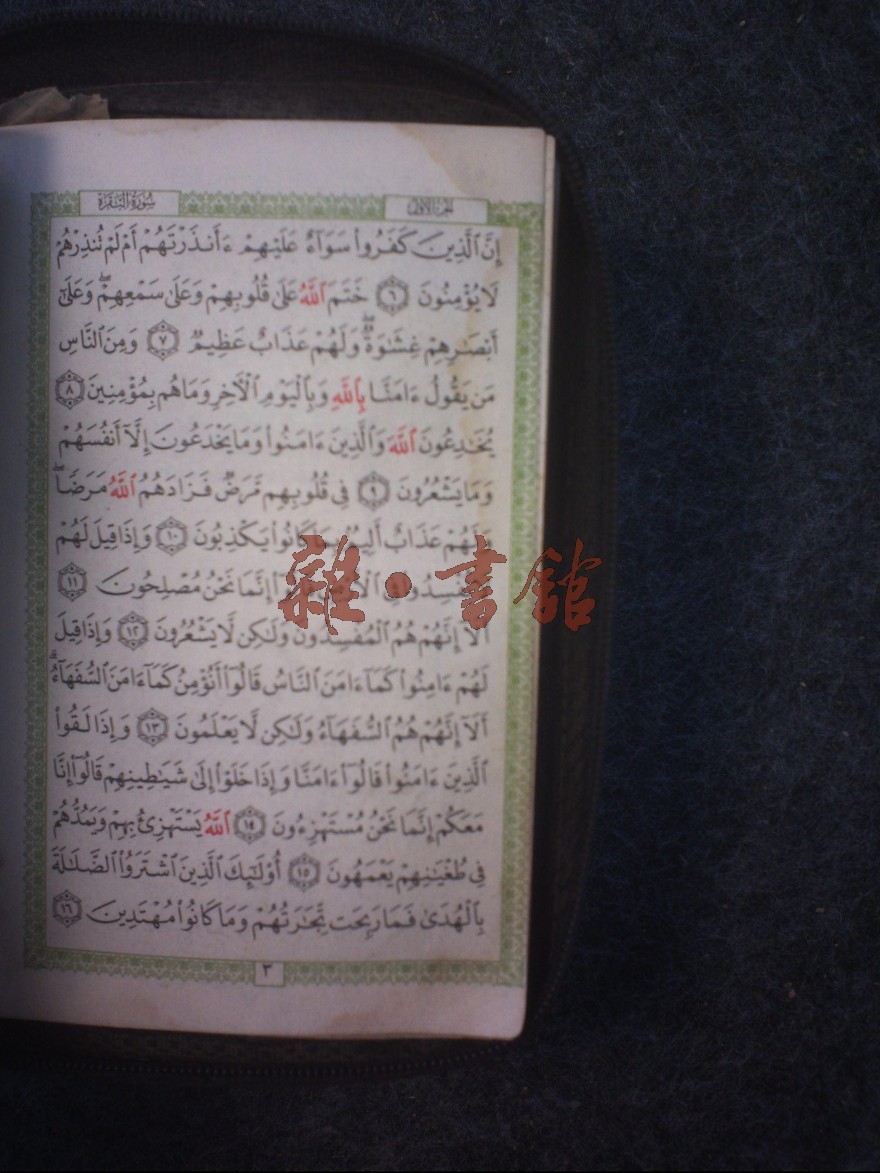 سُورَةُ الْبَقَرَةِ
الجزء الأول
إِنَّ ٱلَّذِينَ كَفَرُوا۟ سَوَآءٌ عَلَيْهِمْ ءَأَنذَرْتَهُمْ أَمْ لَمْ تُنذِرْهُمْ
لَا يُؤْمِنُونَ ٦ خَتَمَ ٱللَّهُ عَلَىٰ قُلُوبِهِمْ وَعَلَىٰ سَمْعِهِمْ ۖ وَعَلَىٰٓ
أَبْصَـٰرِهِمْ غِشَـٰوَةٌ ۖ وَلَهُمْ عَذَابٌ عَظِيمٌ ٧ وَمِنَ ٱلنَّاسِ
مَن يَقُولُ ءَامَنَّا بِٱللَّهِ وَبِٱلْيَوْمِ ٱلْـَٔاخِرِ وَمَا هُم بِمُؤْمِنِينَ ٨
يُخَـٰدِعُونَ ٱللَّهَ وَٱلَّذِينَ ءَامَنُوا۟ وَمَا يَخْدَعُونَ إِلَّآ أَنفُسَهُمْ
وَمَا يَشْعُرُونَ ٩ فِى قُلُوبِهِم مَّرَضٌ فَزَادَهُمُ ٱللَّهُ مَرَضًا ۖ
وَلَهُمْ عَذَابٌ أَلِيمٌۢ بِمَا كَانُوا۟ يَكْذِبُونَ ١٠ وَإِذَا قِيلَ لَهُمْ
تُفْسِدُوا۟ فِى ٱلْأَرْضِ قَالُوٓا۟ إِنَّمَا نَحْنُ مُصْلِحُونَ ١١
أَلَآ إِنَّهُمْ هُمُ ٱلْمُفْسِدُونَ وَلَـٰكِن لَّا يَشْعُرُونَ ١٢ وَإِذَا قِيلَ
لَهُمْ ءَامِنُوا۟ كَمَآ ءَامَنَ ٱلنَّاسُ قَالُوٓا۟ أَنُؤْمِنُ كَمَآ ءَامَنَ ٱلسُّفَهَآءُ ۗ
أَلَآ إِنَّهُمْ هُمُ ٱلسُّفَهَآءُ وَلَـٰكِن لَّا يَعْلَمُونَ ١٣ وَإِذَا لَقُوا۟
ٱلَّذِينَ ءَامَنُوا۟ قَالُوٓا۟ ءَامَنَّا وَإِذَا خَلَوْا۟ إِلَىٰ شَيَـٰطِينِهِمْ قَالُوٓا۟ إِنَّا
مَعَكُمْ إِنَّمَا نَحْنُ مُسْتَهْزِءُونَ ١٤ ٱللَّهُ يَسْتَهْزِئُ بِهِمْ وَيَمُدُّهُمْ
فِى طُغْيَـٰنِهِمْ يَعْمَهُونَ ١٥ أُو۟لَـٰٓئِكَ ٱلَّذِينَ ٱشْتَرَوُا۟ ٱلضَّلَـٰلَةَ
بِٱلْهُدَىٰ فَمَا رَبِحَت تِّجَـٰرَتُهُمْ وَمَا كَانُوا۟ مُهْتَدِينَ ١٦
٣
雜·書館